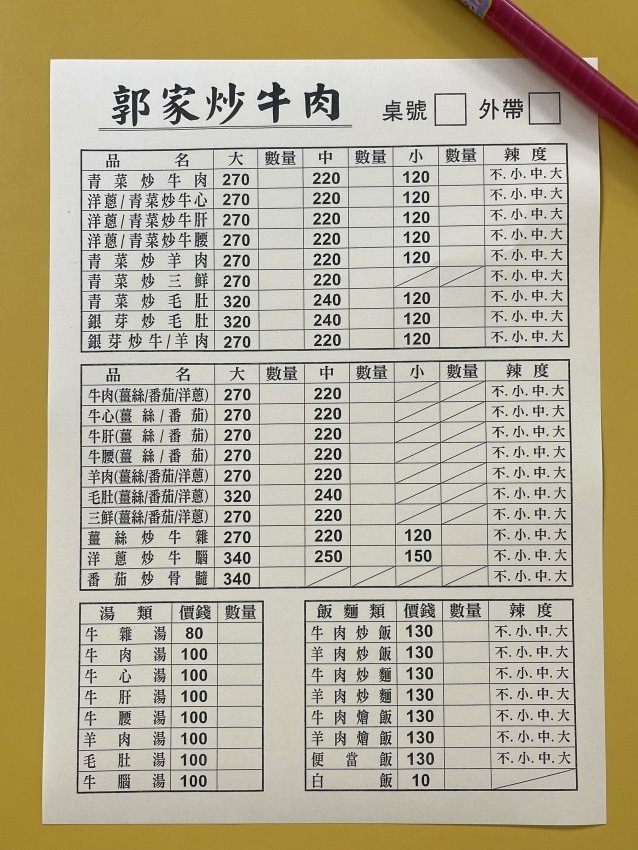 郭家炒牛肉 桌號 外帶
品名 大 數量 中 數量 小 數量 辣度
青菜炒牛肉 270 220 120 不.小.中.大
洋蔥/青菜炒牛心 270 220 120 不.小.中.大
洋蔥/青菜炒牛肝 270 220 120 不.小.中.大
洋蔥/青菜炒牛腰 270 220 120 不.小.中.大
青菜炒羊肉 270 220 120 不.小.中.大
青菜炒三鮮 270 220 不.小.中.大
青菜炒毛肚 320 240 120 不.小.中.大
銀芽炒毛肚 320 240 120 不.小.中.大
銀芽炒牛/羊肉 270 220 120 不.小.中.大
品名 大 數量 中 數量 小 數量 辣度
牛肉(薑絲/番茄/洋蔥) 270 220 不.小.中.大
牛心(薑絲/番茄) 270 220 不.小.中.大
牛肝(薑絲/番茄) 270 220 不.小.中.大
牛腰(薑絲/番茄) 270 220 不.小.中.大
羊肉(薑絲/番茄/洋蔥) 270 220 不.小.中.大
毛肚(薑絲/番茄/洋蔥) 320 240 不.小.中.大
三鮮(薑絲/番茄/洋蔥) 270 220 不.小.中.大
薑絲炒牛雜 270 220 120 不.小.中.大
洋蔥炒牛腦 340 250 150 不.小.中.大
番茄炒骨髓 340 不.小.中.大
湯類 價錢 數量
牛雜湯 80
牛肉湯 100
牛心湯 100
牛肝湯 100
牛腰湯 100
羊肉湯 100
毛肚湯 100
牛腦湯 100
飯麵類 價錢 數量 辣度
牛肉炒飯 130 不.小.中.大
羊肉炒飯 130 不.小.中.大
牛肉炒麵 130 不.小.中.大
羊肉炒麵 130 不.小.中.大
牛肉燴飯 130 不.小.中.大
羊肉燴飯 130 不.小.中.大
便當飯 130 不.小.中.大
白飯 10